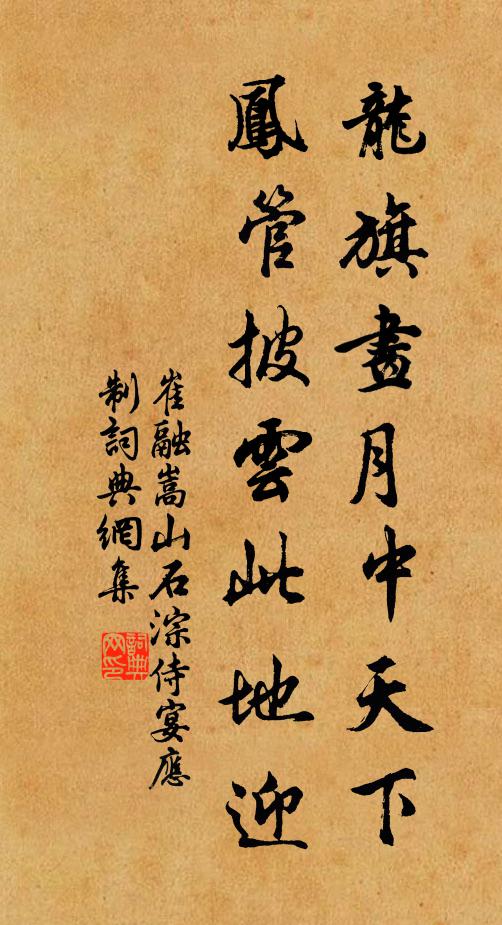 龍旗晝月中天下
鳳管披雲此地迎
崔融嵩山石淙侍宴應
制詞典網集
詞典
网印